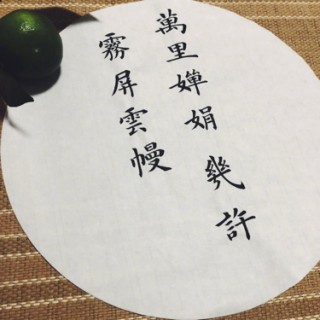 萬里嬋娟
幾許
霧屏雲幔